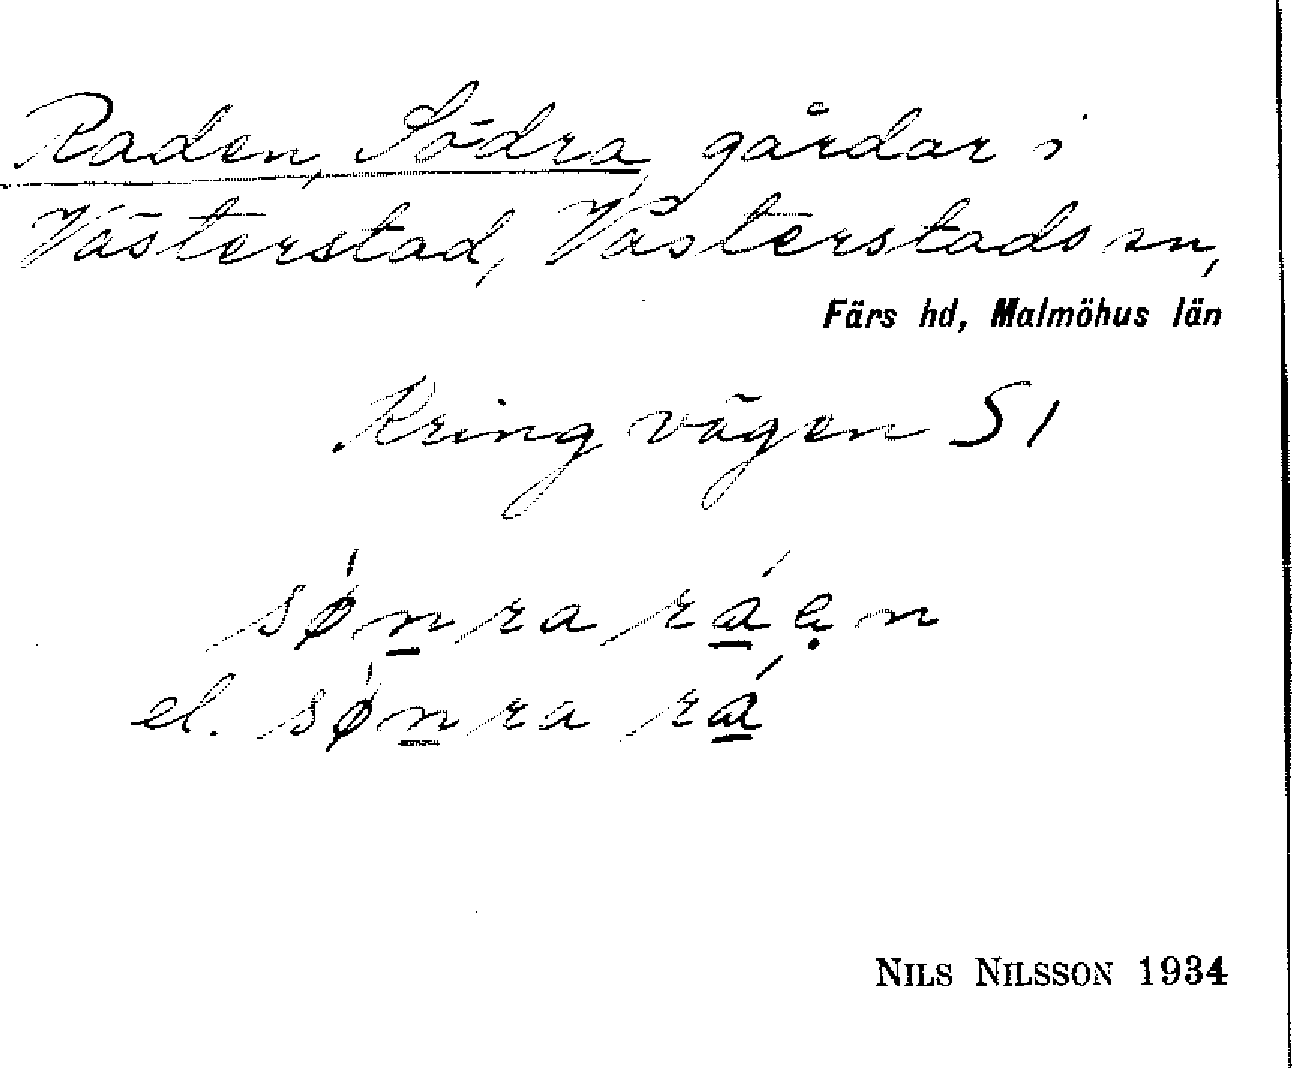 Raden, Södra gårdar i
Västerstad, Västerstads sn,
Färs hd, Malmöhus län
Kring vägen S1
sǿn̲ra rá̲ẹn
el. sǿn̲ra rá̲
NILS NILSSON 1934